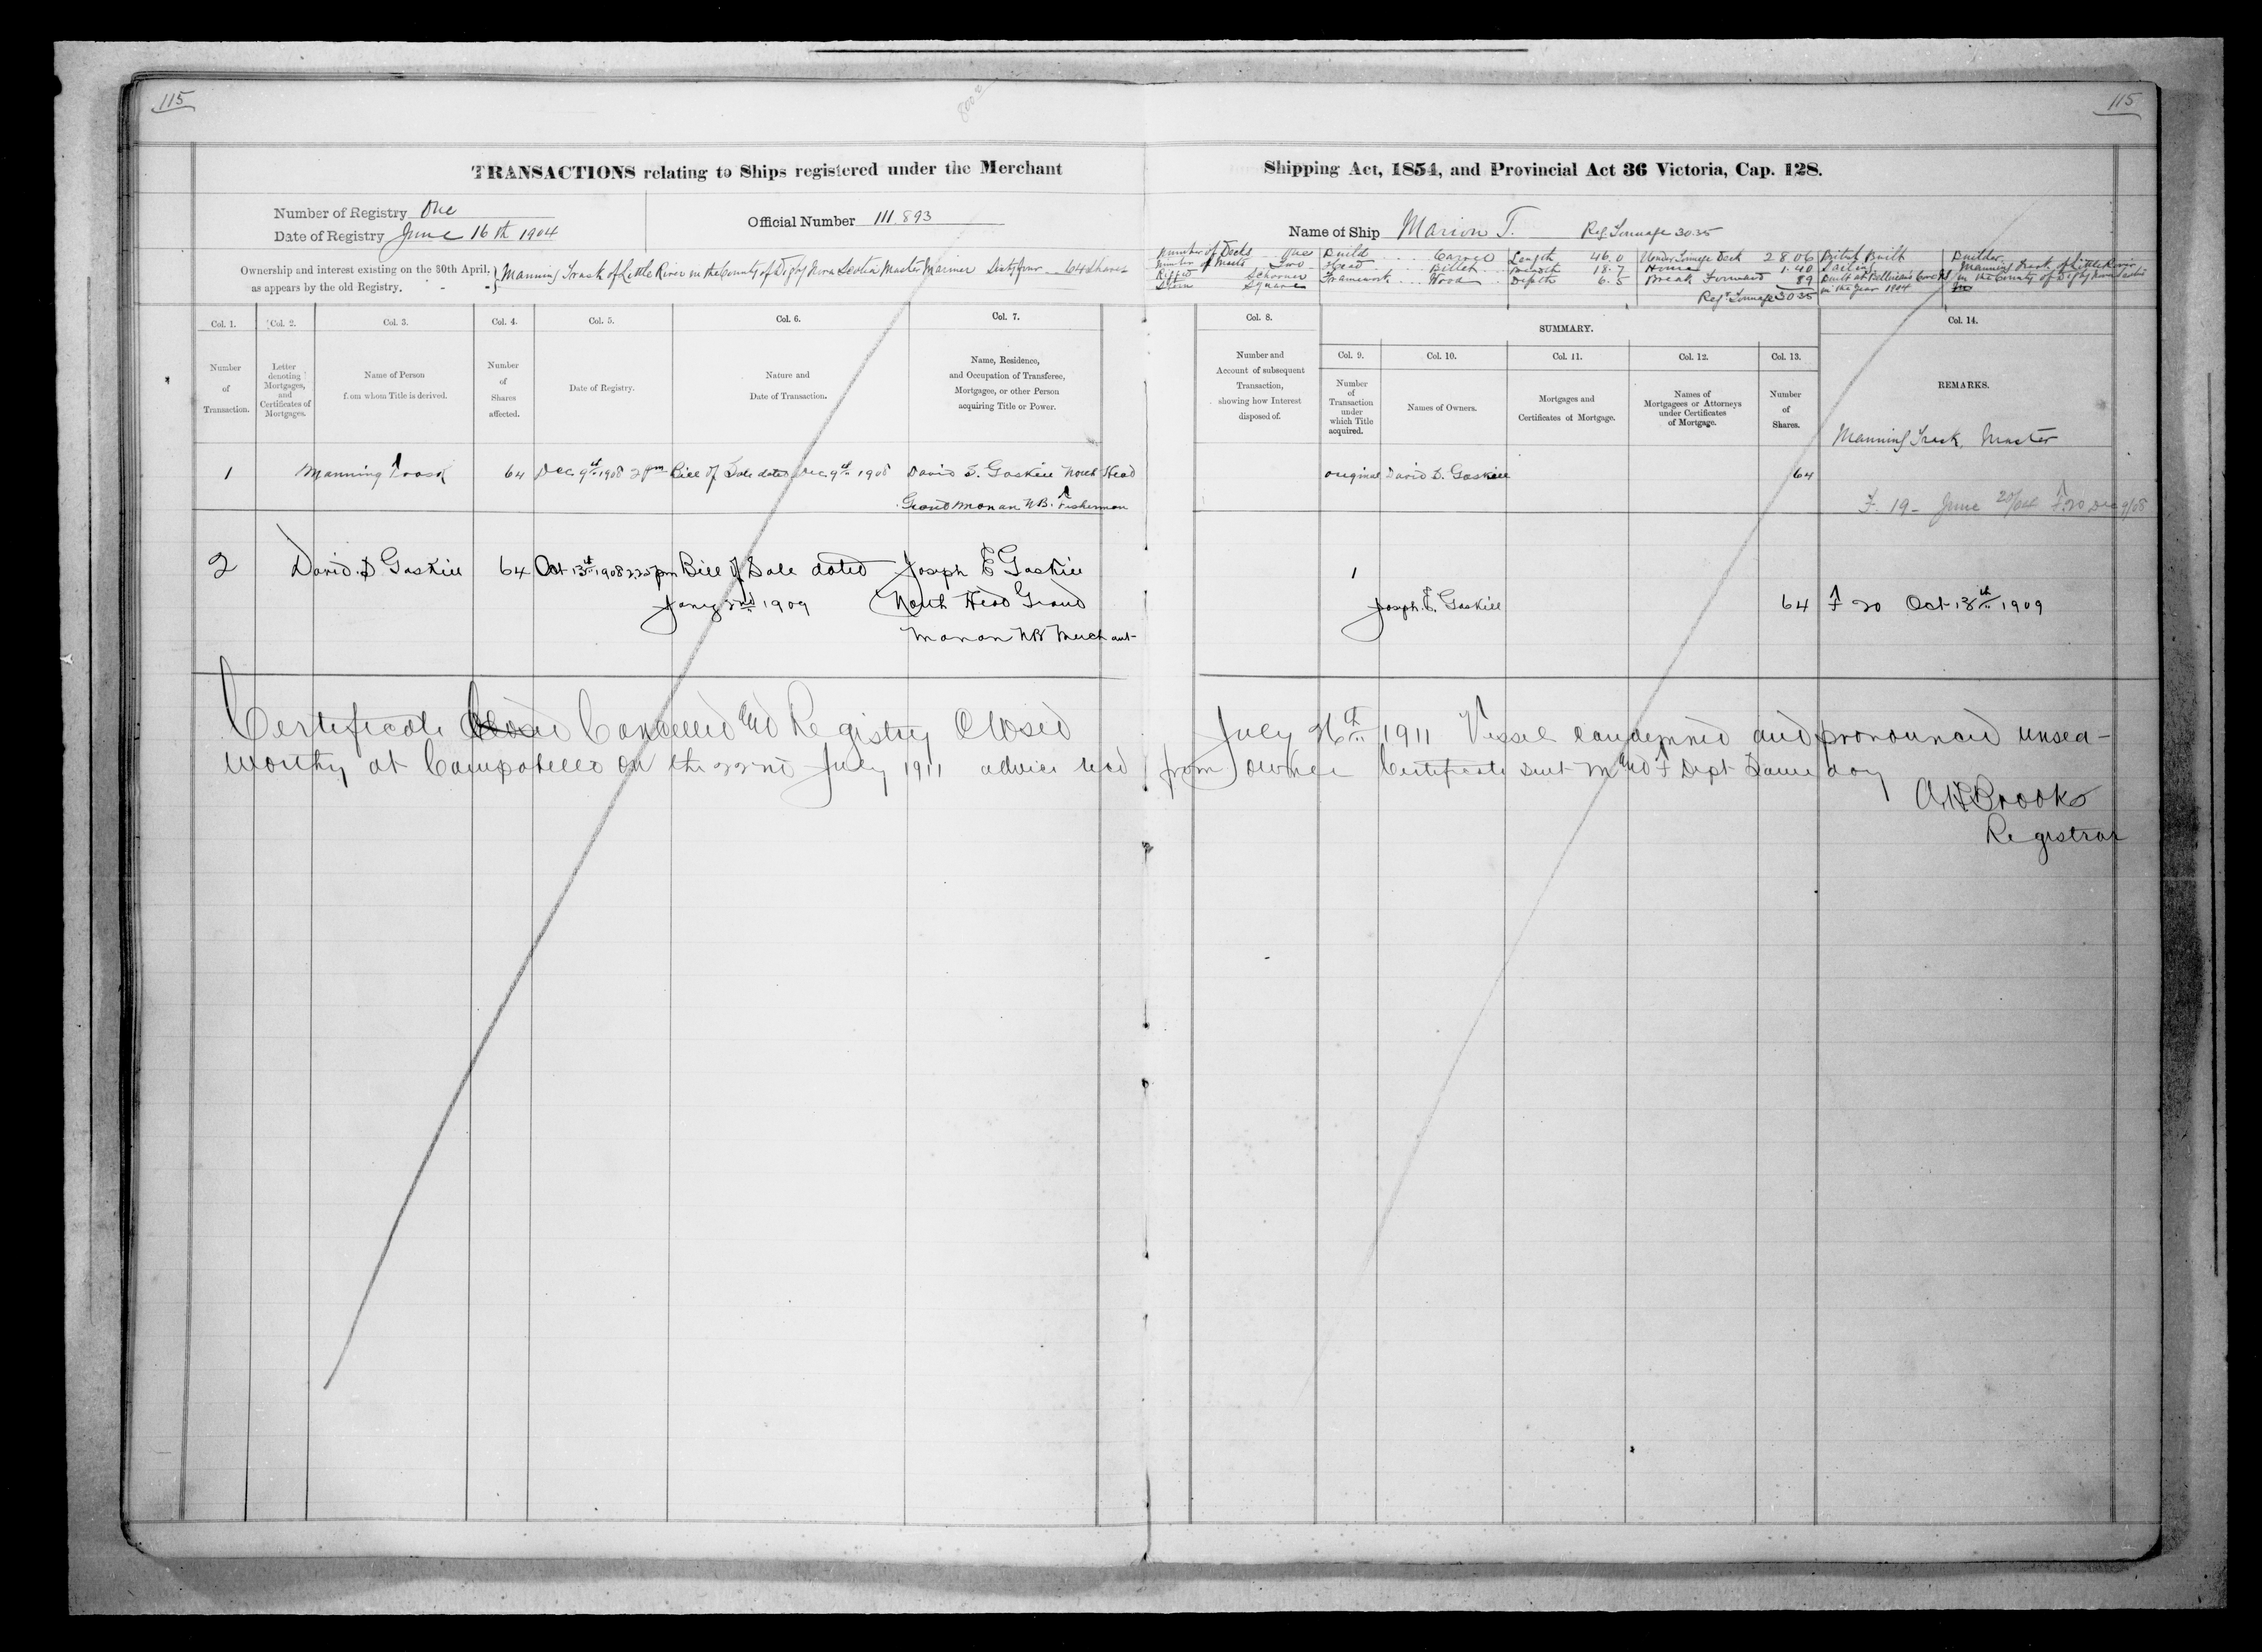 115
115
TRANSACTIONS relating to Ships registered under the Merchant Shipping Act, 1854, and Provincial Act 36 Victoria, Cap. 128.
Number of Registry One
Date of Registry June 16th 1904
Official Number 111.893
Name of Ship Marion T. Reg Tonnage 30.35
Ownership and interest existing on the 30th April, as appears by the old Registry. } Manning Trask of Little River in the County of Digby Nova Scotia Master Mariner Sixty four 64 Shares
Number of Decks One
Number of Masts Two
Rigged Schooner
Stern Square
Build Carvel
Head Billet
Framework Wood
Length 46.0
Breadth 18.7
Depth 6.5
Under Tonnage Deck 28.06
House 1.40
Break Forward 89
Reg. Tonnage 30.35
British Built
Sailing
in the Year 1904
Builder
Manning Trask of Little River
in the County of Digby Nova Scotia
Col. 1.
Number of Transaction.
Col. 2.
Letter denoting Mortgages, and Certificates of Mortgages.
Col. 3.
Name of Person f.om whom Title is derived.
Col. 4.
Number of Shares affected.
Col. 5.
Date of Registry.
Col. 6.
Nature and Date of Transaction.
Col. 7.
Name, Residence, and Occupation of Transferee, Mortgagee, or other Person acquiring Title or Power.
Col. 8.
Number and Account of subsequent Transaction, showing how Interest disposed of.
SUMMARY.
Col. 9.
Number of Transaction under which Title acquired.
Col. 10.
Names of Owners.
Col. 11.
Mortgages and Certificates of Mortgage.
Col. 12.
Names of Mortgagees or Attorneys under Certificates of Mortgage.
Col. 13.
Number of Shares.
Col. 14.
REMARKS.
Manning Trask, Master
1 Manning Trask 64 Dec 9th 1908 2 pm Bill of Sale dated Dec 9th 1908 David D. Gaskill North Head
Grand Manan N.B. Fisherman
original David D. Gaskill 64
F. 19 - June 20/04 F. 20 Dec 9/08
2 David D Gaskill 64 Oct 13th 1908 2.20 pm Bill of Sale dated Joseph E Gaskill
Jany 2nd 1909 North Head Grand
Manan NB Merchant
1
Joseph E. Gaskill 64 F 20 Oct 13th 1909
Certificate Closed Cancelled and Registry Closed July 26th 1911 Vessel condemned and pronounced unsea-
worthy at Campobello on the 22nd July 1911 advice recd from owner Certificate sent M and F Dept Same day
A H Brooks
Registrar